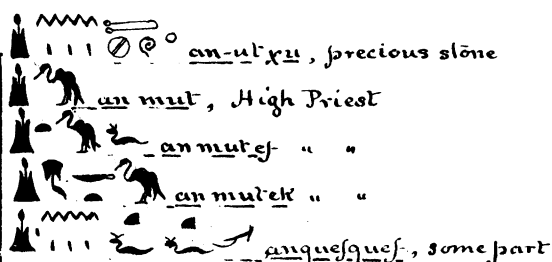 an-ut χu, precious stōne
an mut, High Priest
an mutef " "
an mutek " "
anquefquef, some part